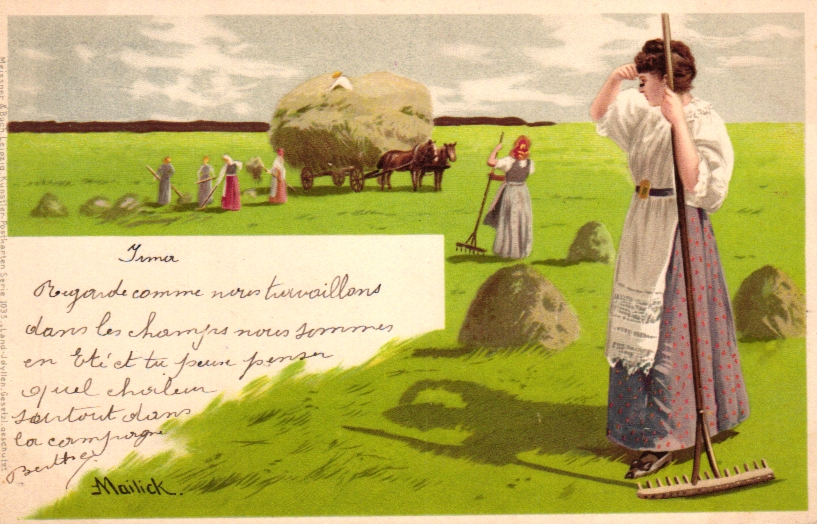 Irma
Regarde comme nous travaillons
dans les champs nous sommes
en Eté et tu peux penser
quel chaleur
surtout dans
la campagne
Berthe
Mailick.
Meissner & Buch Leipzig Künstler-Postkarten Serie 1035 „Land-Idyllen“ Gesetzl. geschützt